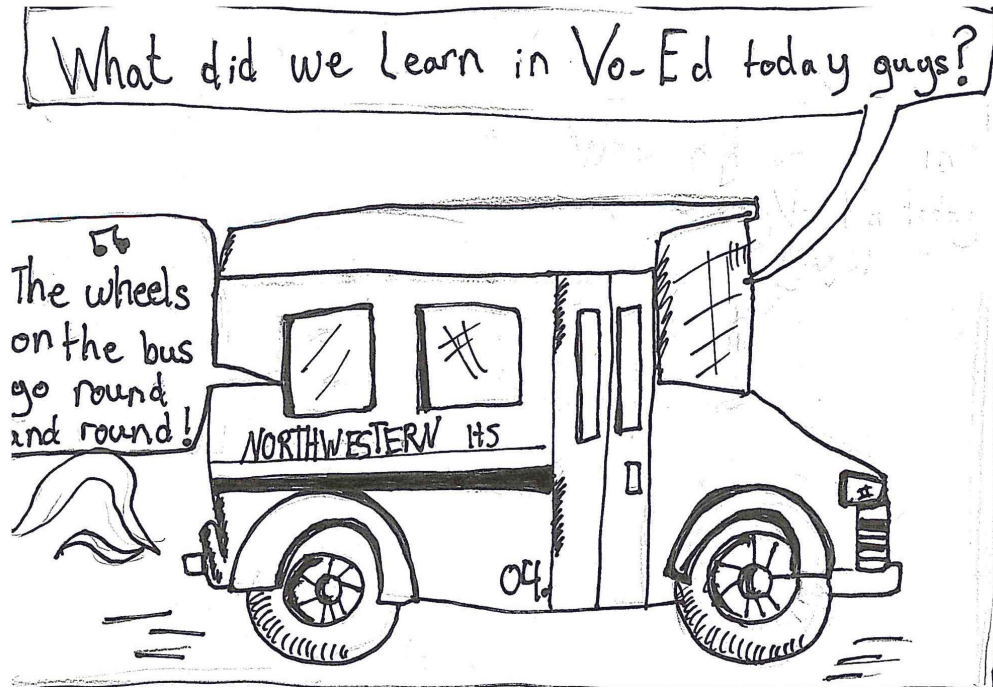 What did we Learn in Vo-Ed today guys?
The wheels
on the bus
go round
and round!
NORTHWESTERN HS
04.